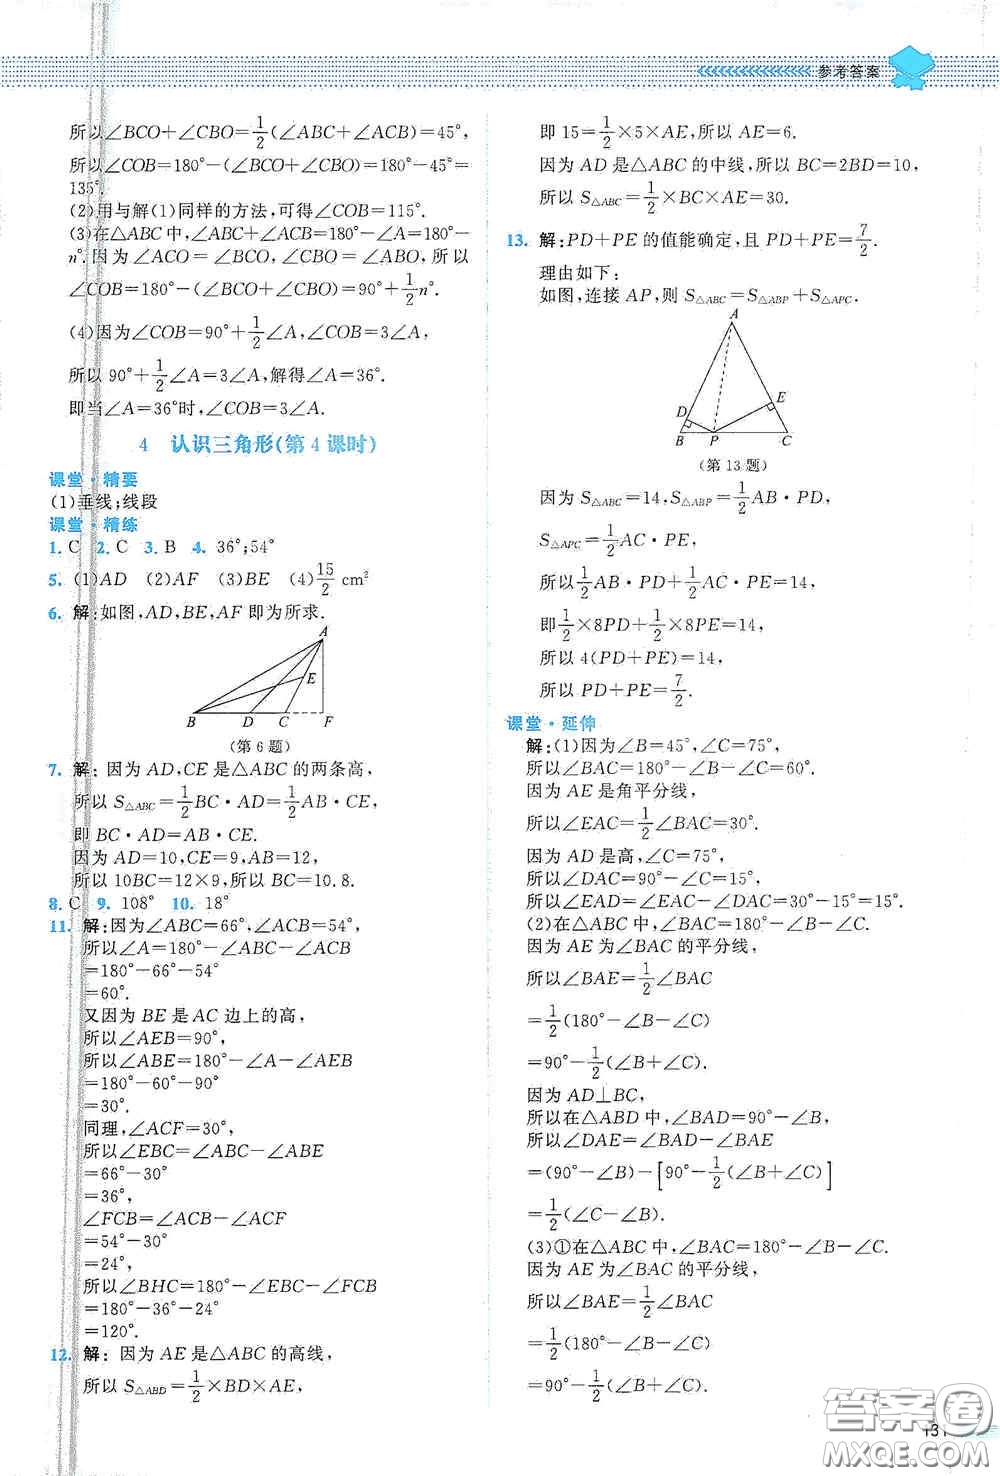 参考答案
所以∠BCO+∠CBO=1/2(∠ABC+∠ACB)=45°,
所以∠COB=180°-(∠BCO+∠CBO)=180°-45°=
135°.
(2)用与解(1)同样的方法,可得∠COB=115°.
(3)在△ABC中,∠ABC+∠ACB=180°-∠A=180°-
n°.因为∠ACO=∠BCO,∠CBO=∠ABO,所以
∠COB=180°-(∠BCO+∠CBO)=90°+1/2n°.
(4)因为∠COB=90°+1/2∠A,∠COB=3∠A,
所以90°+1/2∠A=3∠A,解得∠A=36°.
即当∠A=36°时,∠COB=3∠A.
4 认识三角形(第4课时)
课堂·精要
(1)垂线;线段
课堂·精练
1. C 2. C 3. B 4. 36°;54°
5. (1)AD (2)AF (3)BE (4)15/2 cm²
6. 解:如图,AD,BE,AF即为所求.
A
E
B D C F
(第6题)
7. 解:因为AD,CE是△ABC的两条高,
所以S△ABC=1/2BC·AD=1/2AB·CE,
即BC·AD=AB·CE.
因为AD=10,CE=9,AB=12,
所以10BC=12×9,所以BC=10.8.
8. C 9. 108° 10. 18°
11. 解:因为∠ABC=66°,∠ACB=54°,
所以∠A=180°-∠ABC-∠ACB
=180°-66°-54°
=60°.
又因为BE是AC边上的高,
所以∠AEB=90°,
所以∠ABE=180°-∠A-∠AEB
=180°-60°-90°
=30°.
同理,∠ACF=30°,
所以∠EBC=∠ABC-∠ABE
=66°-30°
=36°,
∠FCB=∠ACB-∠ACF
=54°-30°
=24°,
所以∠BHC=180°-∠EBC-∠FCB
=180°-36°-24°
=120°.
12. 解:因为AE是△ABC的高线,
所以S△ABD=1/2×BD×AE,
即15=1/2×5×AE,所以AE=6.
因为AD是△ABC的中线,所以BC=2BD=10,
所以S△ABC=1/2×BC×AE=30.
13. 解:PD+PE的值能确定,且PD+PE=7/2.
理由如下:
如图,连接AP,则S△ABC=S△ABP+S△APC.
A
D E
B P C
(第13题)
因为S△ABC=14,S△ABP=1/2AB·PD,
S△APC=1/2AC·PE,
所以1/2AB·PD+1/2AC·PE=14,
即1/2×8PD+1/2×8PE=14,
所以4(PD+PE)=14,
所以PD+PE=7/2.
课堂·延伸
解:(1)因为∠B=45°,∠C=75°,
所以∠BAC=180°-∠B-∠C=60°.
因为AE是角平分线,
所以∠EAC=1/2∠BAC=30°.
因为AD是高,∠C=75°,
所以∠DAC=90°-∠C=15°,
所以∠EAD=∠EAC-∠DAC=30°-15°=15°.
(2)在△ABC中,∠BAC=180°-∠B-∠C.
因为AE为∠BAC的平分线,
所以∠BAE=1/2∠BAC
=1/2(180°-∠B-∠C)
=90°-1/2(∠B+∠C).
因为AD⊥BC,
所以在△ABD中,∠BAD=90°-∠B,
所以∠DAE=∠BAD-∠BAE
=(90°-∠B)-[90°-1/2(∠B+∠C)]
=1/2(∠C-∠B).
(3)①在△ABC中,∠BAC=180°-∠B-∠C.
因为AE为∠BAC的平分线,
所以∠BAE=1/2∠BAC
=1/2(180°-∠B-∠C)
=90°-1/2(∠B+∠C).
131
答案圈
MXQE.COM